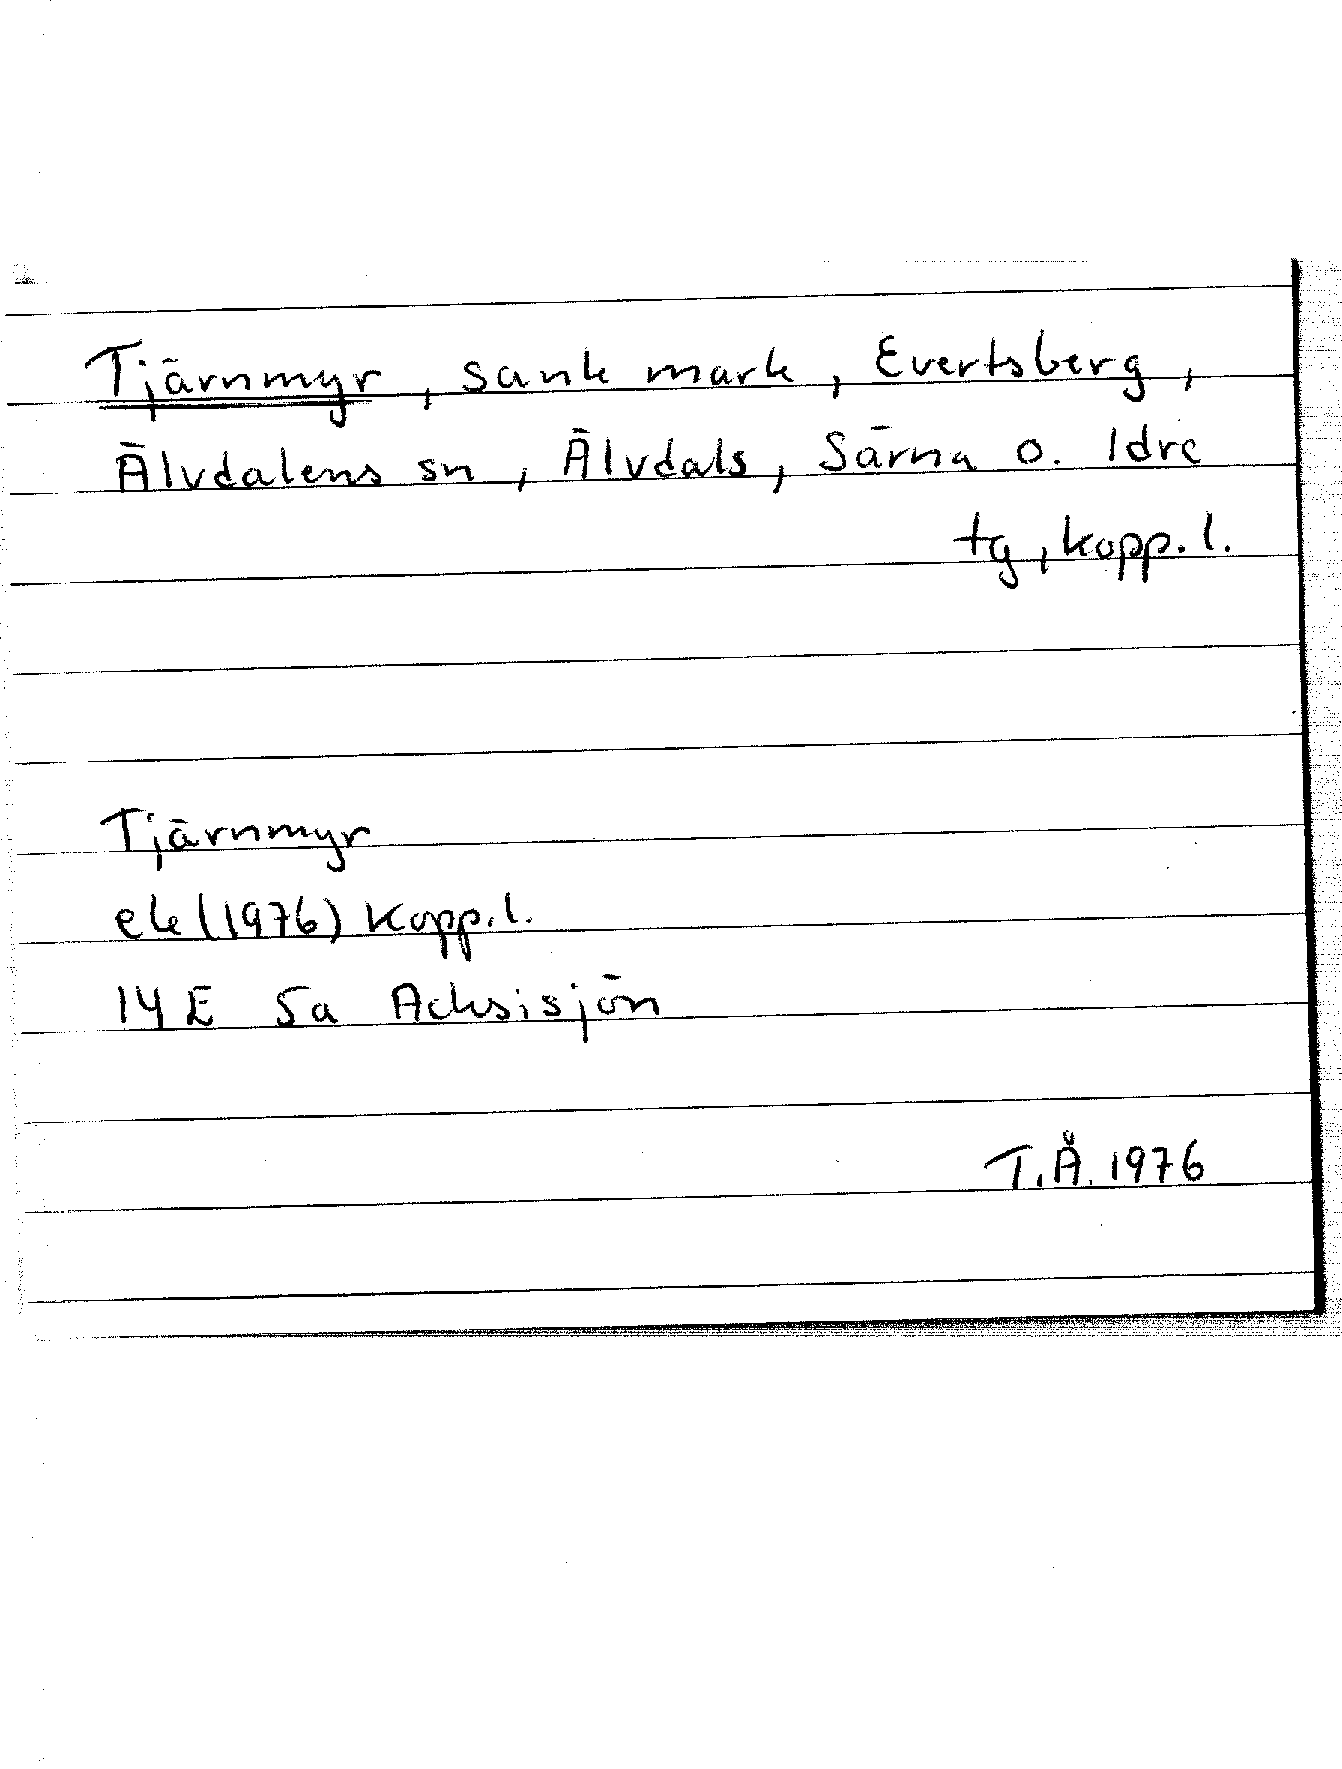 Tjärnmyr, sank mark, Evertsberg,
Älvdalens sn, Älvdals, Särna o. Idre
tg, kopp. l.
Tjärnmyr
ek (1976) Kopp. l.
14E 5a Acksisjön
T.Å. 1976